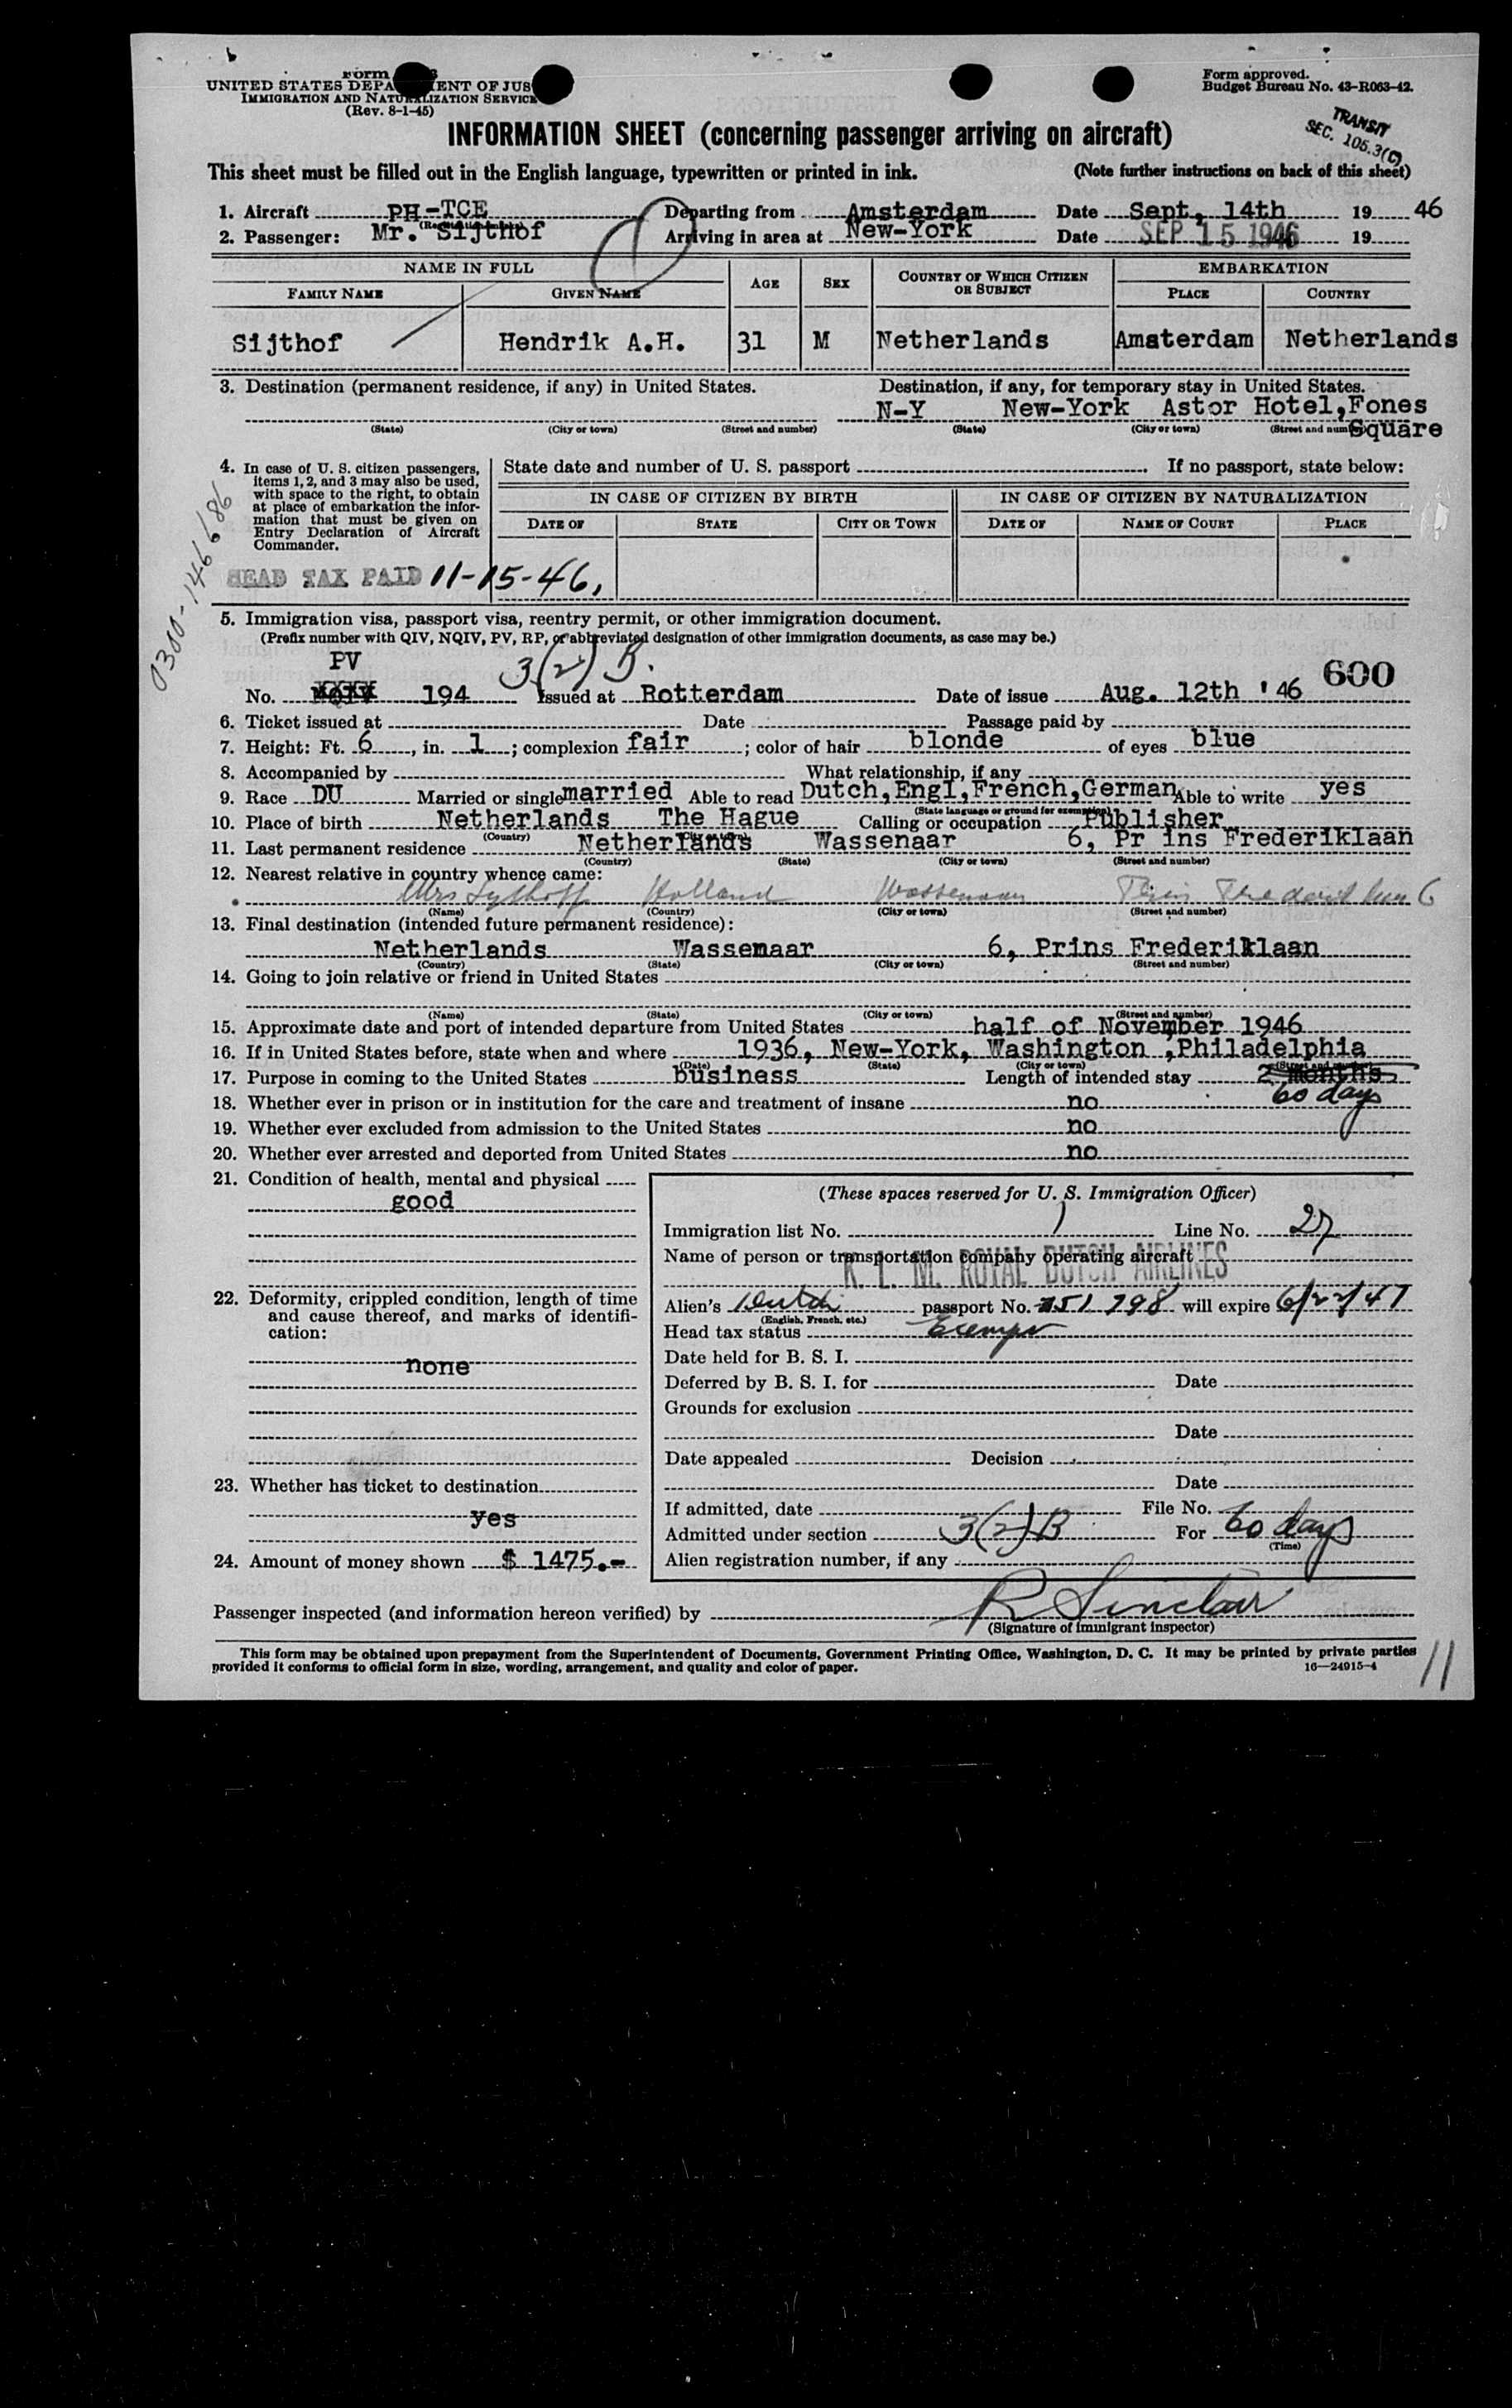 Form
UNITED STATES DEPA ENT OF JUS
IMMIGRATION AND NATURALIZATION SERVICE
(Rev. 8-1-45)
Form approved.
Budget Bureau No. 43-R063-42.
TRANSIT
SEC. 105.3(C)
INFORMATION SHEET (concerning passenger arriving on aircraft)
This sheet must be filled out in the English language, typewritten or printed in ink. (Note further instructions on back of this sheet)
1. Aircraft PH-TCE Departing from Amsterdam Date Sept, 14th 19 46
2. Passenger: Mr. Sijthof Arriving in area at New-York Date SEP 15 1946 19
NAME IN FULL AGE SEX COUNTRY OF WHICH CITIZEN OR SUBJECT EMBARKATION
FAMILY NAME GIVEN NAME PLACE COUNTRY
Sijthof Hendrik A.H. 31 M Netherlands Amsterdam Netherlands
3. Destination (permanent residence, if any) in United States. Destination, if any, for temporary stay in United States.
N-Y New-York Astor Hotel,Fones
Square
(State) (City or town) (Street and number) (State) (City or town) (Street and num
4. In case of U. S. citizen passengers, items 1, 2, and 3 may also be used, with space to the right, to obtain at place of embarkation the information that must be given on Entry Declaration of Aircraft Commander.
State date and number of U. S. passport If no passport, state below:
IN CASE OF CITIZEN BY BIRTH IN CASE OF CITIZEN BY NATURALIZATION
DATE OF STATE CITY OR TOWN DATE OF NAME OF COURT PLACE
HEAD TAX PAID 11-15-46.
0300-146686
5. Immigration visa, passport visa, reentry permit, or other immigration document.
(Prefix number with QIV, NQIV, PV, RP, or abbreviated designation of other immigration documents, as case may be.)
PV 3(2) B. 600
No. NQIV 194 Issued at Rotterdam Date of issue Aug. 12th '46
6. Ticket issued at Date Passage paid by
7. Height: Ft. 6, in. 1; complexion fair; color of hair blonde of eyes blue
8. Accompanied by What relationship, if any
9. Race DU Married or single married Able to read Dutch,Engl,French,German Able to write yes
(State language or ground for exemption)
10. Place of birth Netherlands The Hague Calling or occupation Publisher
(Country)
11. Last permanent residence Netherlands Wassenaar 6, Pr ins Frederiklaan
(Country) (State) (City or town) (Street and number)
12. Nearest relative in country whence came:
Mrs Sythoff Holland Wassenaar
(Name) (Country) (City or town) (Street and number)
13. Final destination (intended future permanent residence):
Netherlands Wassenaar 6, Prins Frederiklaan
(Country) (State) (City or town) (Street and number)
14. Going to join relative or friend in United States
(Name) (State) (City or town) (Street and number)
15. Approximate date and port of intended departure from United States half of November 1946
16. If in United States before, state when and where 1936, New-York, Washington ,Philadelphia
(Date) (State) (City or town) (Street and number)
17. Purpose in coming to the United States business Length of intended stay 2 months
60 days
18. Whether ever in prison or in institution for the care and treatment of insane no
19. Whether ever excluded from admission to the United States no
20. Whether ever arrested and deported from United States no
21. Condition of health, mental and physical
good
22. Deformity, crippled condition, length of time and cause thereof, and marks of identification:
none
23. Whether has ticket to destination
yes
24. Amount of money shown $ 1475.-
(These spaces reserved for U. S. Immigration Officer)
Immigration list No. 1 Line No. 27
Name of person or transportation company operating aircraft
K. L. M. ROYAL DUTCH AIRLINES
Alien's Dutch passport No. 151798 will expire 6/22/47
(English, French, etc.)
Head tax status Exempt
Date held for B. S. I.
Deferred by B. S. I. for Date
Grounds for exclusion
Date
Date appealed Decision
Date
If admitted, date File No.
Admitted under section 3(2)B For 60 days
(Time)
Alien registration number, if any
Passenger inspected (and information hereon verified) by R Sinclair
(Signature of immigrant inspector)
This form may be obtained upon prepayment from the Superintendent of Documents, Government Printing Office, Washington, D. C. It may be printed by private parties
provided it conforms to official form in size, wording, arrangement, and quality and color of paper. 16—24915-4
11